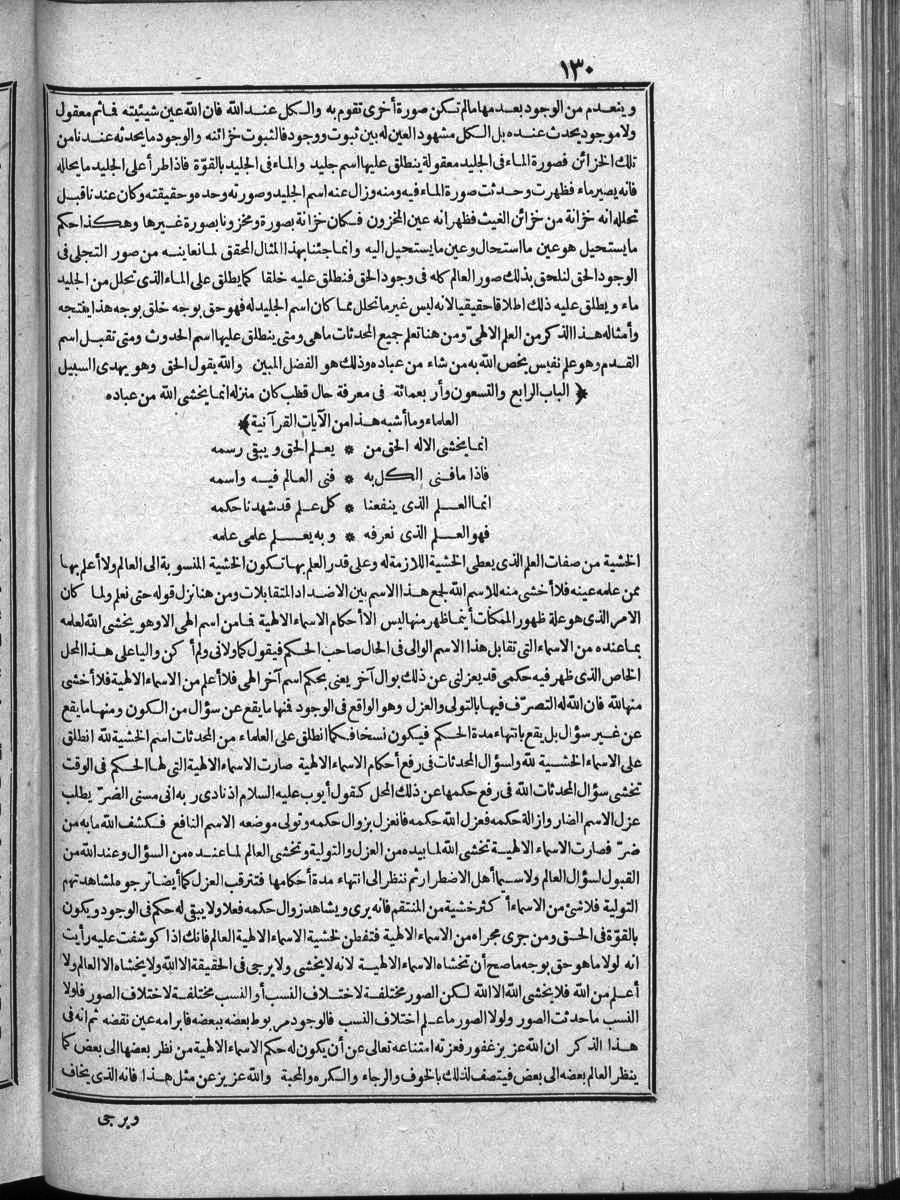 ١٣٠
وينعدم من الوجود بعدمها مالم تكن صورة أخرى تقوم به والكل عند الله فان الله عين شيئيته فما ثم معقول
ولا موجود يحدث عنده بل الكل مشهود العين له بين ثبوت ووجود فالثبوت خزائنه والوجود ما يحدثه عندنا من
تلك الخزائن فصورة الماء فى الجليد معقولة ينطلق عليها اسم جليد والماء فى الجليد بالقوّة فاذا طرأ على الجليد ما يحلله
فانه يصير ماء فظهرت وحدثت صورة الماء فيه ومنه وزال عنه اسم الجليد وصورته وحده وحقيقته وكان عندنا قبل
تحلله انه خزانة من خزائن الغيث فظهر انه عين المخزون فكان خزانة بصورة ومخزونا بصورة غيرها وهكذا حكم
ما يستحيل هو عين ما استحال وعين ما يستحيل اليه وانما جئنا بهذا المثال المحقق لما نعاينه من صور التجلى فى
الوجود الحق لنلحق بذلك صور العالم كله فى وجود الحق فنطلق عليه خلقا كما يطلق على الماء الذى تحلل من الجليد
ماء ويطلق عليه ذلك اطلاقا حقيقيا لانه ليس غير ما تحلل مما كان اسم الجليد له فهو حق بوجه خلق بوجه هذا ينتجه
وأمثاله هذا الذكر من العلم الالهىّ ومن هنا تعلم جميع المحدثات ماهى ومتى ينطلق عليها اسم الحدوث ومتى تقبل اسم
القدم وهو علم نفيس يخص الله به من شاء من عباده وذلك هو الفضل المبين والله يقول الحق وهو يهدى السبيل
﴿ الباب الرابع والتسعون وأربعمائة فى معرفة حال قطب كان منزله انما يخشى الله من عباده
العلماء وما أشبه هذا من الآيات القرآنية﴾
انما يخشى الاله الحق من * يعلم الحق ويبقى رسمه
فاذا ما فنى الكل به * فنى العالم فيه واسمه
انما العلم الذى ينفعنا * كل علم قد شهدنا حكمه
فهو العلم الذى نعرفه * وبه يعلم علمى علمه
الخشية من صفات العلم الذى يعطى الخشية اللازمة له وعلى قدر العلم بها تكون الخشية المنسوبة الى العالم ولا أعلم بها
ممن علمه عينه فلا أخشى منه للاسم الله لجمع هذا الاسم بين الاضداد المتقابلات ومن هنا نزل قوله حتى نعلم ولما كان
الامر الذى هو علة ظهور الممكنات أينما ظهر منها ليس الا أحكام الاسماء الالهية فما من اسم الهى الا وهو يخشى الله لعلمه
بما عنده من الاسماء التى تقابل هذا الاسم الوالى فى الحال صاحب الحكم فيقول كما ولانى ولم أكن واليا على هذا المحل
الخاص الذى ظهر فيه حكمى قد يعزلنى عن ذلك بوال آخر يعنى بحكم اسم آخر الهى فلا أعلم من الاسماء الالهية فلا أخشى
منها لله فان الله له التصرّف فيها بالتولى والعزل وهو الواقع فى الوجود فنها ما يقع عن سؤال من الكون ومنها ما يقع
عن غير سؤال بل يقع بانتهاء مدة الحكم فيكون نسخا فكما انطلق على العلماء من المحدثات اسم الخشية لله انطلق
على الاسماء الخشية لله ولسؤال المحدثات فى رفع أحكام الاسماء الالهية صارت الاسماء الالهية التى لها الحكم فى الوقت
تخشى سؤال المحدثات الله فى رفع حكمها عن ذلك المحل كقول أيوب عليه السلام اذ نادى ربه انى مسنى الضرّ يطلب
عزل الاسم الضار وازالة حكمه فعزل الله حكمه فانعزل بزوال حكمه وتولى موضعه الاسم النافع فكشف الله ما به من
ضرّ فصارت الاسماء الالهية تخشى الله لما بيده من العزل والتولية وتخشى العالم لما عنده من السؤال وعند الله من
القبول لسؤال العالم ولاسيما أهل الاضطرار ثم تنظر الى انتهاء مدة أحكامها فتترقب العزل كما أيضا ترجوه لمشاهدتهم
التولية فلاشئ من الاسماء أكثر خشية من المنتقم فانه يرى ويشاهد زوال حكمه فعلا ولا يبقى له حكم فى الوجود ويكون
بالقوّة فى الحق ومن جرى مجراه من الاسماء الالهية فتفطن لخشية الاسماء الالهية العالم فانك اذا كوشفت عليه رأيت
انه لولا ما هو حق بوجه ما صح أن تخشاه الاسماء الالهية لانه لا يخشى ولا يرجى فى الحقيقة الا الله ولا يخشاه الا العالم ولا
أعلم من الله فلا يخشى الله الا الله لكن الصور مختلفة لاختلاف النسب أو النسب مختلفة لاختلاف الصور فلولا
النسب ما حدثت الصور ولولا الصور ما علم اختلاف النسب فالوجود مربوط بعضه ببعضه فابرامه عين نقضه ثم انه فى
هذا الذكر ان الله عزيز غفور فعزته امتناعه تعالى عن أن يكون له حكم الاسماء الالهية من نظر بعضها الى بعض كما
ينظر العالم بعضه الى بعض فيتصف لذلك بالخوف والرجاء والسكره والمحبة والله عزيز عن مثل هذا فانه الذى يخاف
ويرجى